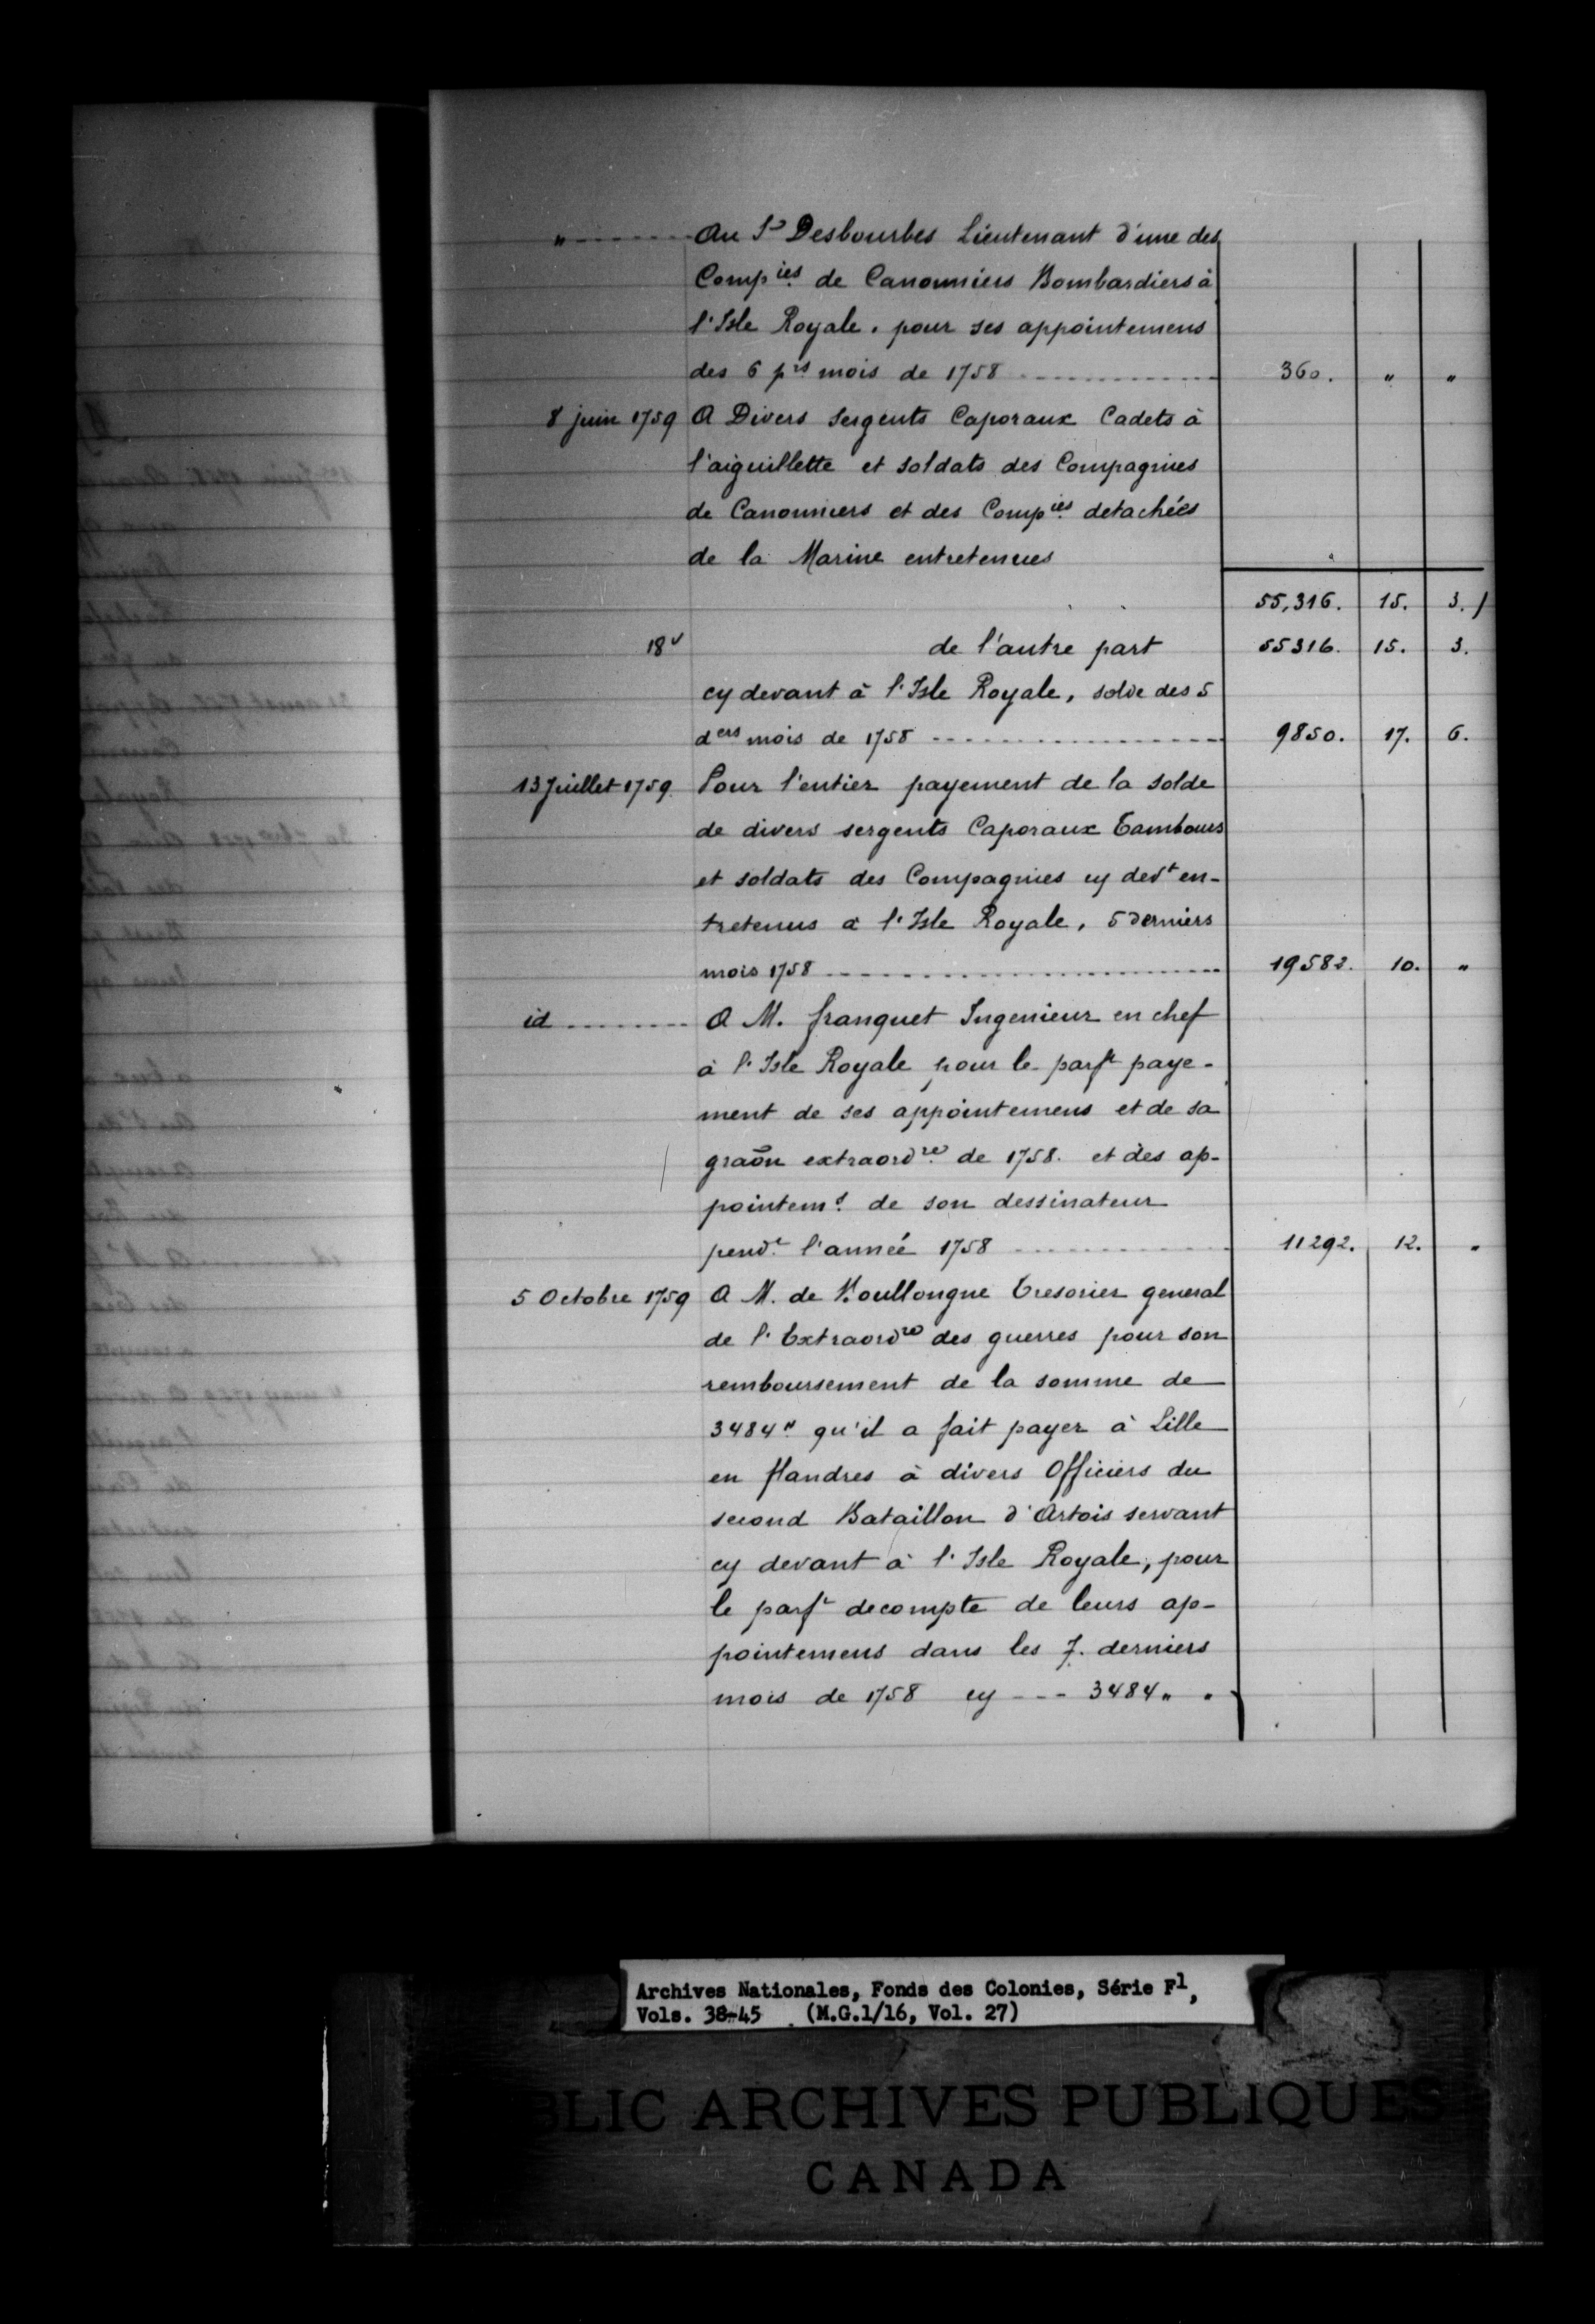 " -------- Au Sr Desbourbes Lieutenant d'une des
Compies de Canonniers Bombardiers à
l'Isle Royale. pour ses appointemens
des 6 prs mois de 1758 ------------ 360. " "
8 juin 1759 A Divers Sergents Caporaux Cadets à
l'aiguillette et soldats des Compagnies
de Canonniers et des Compies detachées
de la Marine entretenues
55,316. 15. 3. /
18v de l'autre part 55316. 15. 3.
cy devant à l'Isle Royale, solde des 5
ders mois de 1758 ------------ 9850. 17. 6.
13 Juillet 1759 Pour l'entier payement de la solde
de divers sergents Caporaux Tambours
et soldats des Compagnies cy devt en-
tretenus a l'Isle Royale, 5 derniers
mois 1758 ------------ 19582. 10. "
id -------- A M. franquet Ingenieur en chef
à l'Isle Royale pour le parft paye-
ment de ses appointemens et de sa
graōn extraordre de 1758. et des ap-
pointems de son dessinateur
pendt l'année 1758 ------------ 11292. 12. "
5 Octobre 1759 A M. de Moullongne Tresorier general
de l'Extraordre des guerres pour son
remboursement de la somme de
3484" qu'il a fait payer à Lille
en flandres à divers Officiers du
second Bataillon d'Artois servant
cy devant à l'Isle Royale, pour
le parft decompte de leurs ap-
pointemens dans les 7. derniers
mois de 1758 cy --- 3484 " "
Archives Nationales, Fonds des Colonies, Série F1,
Vols. 38-45 (M.G.1/16, Vol. 27)
BLIC ARCHIVES PUBLIQUES
CANADA